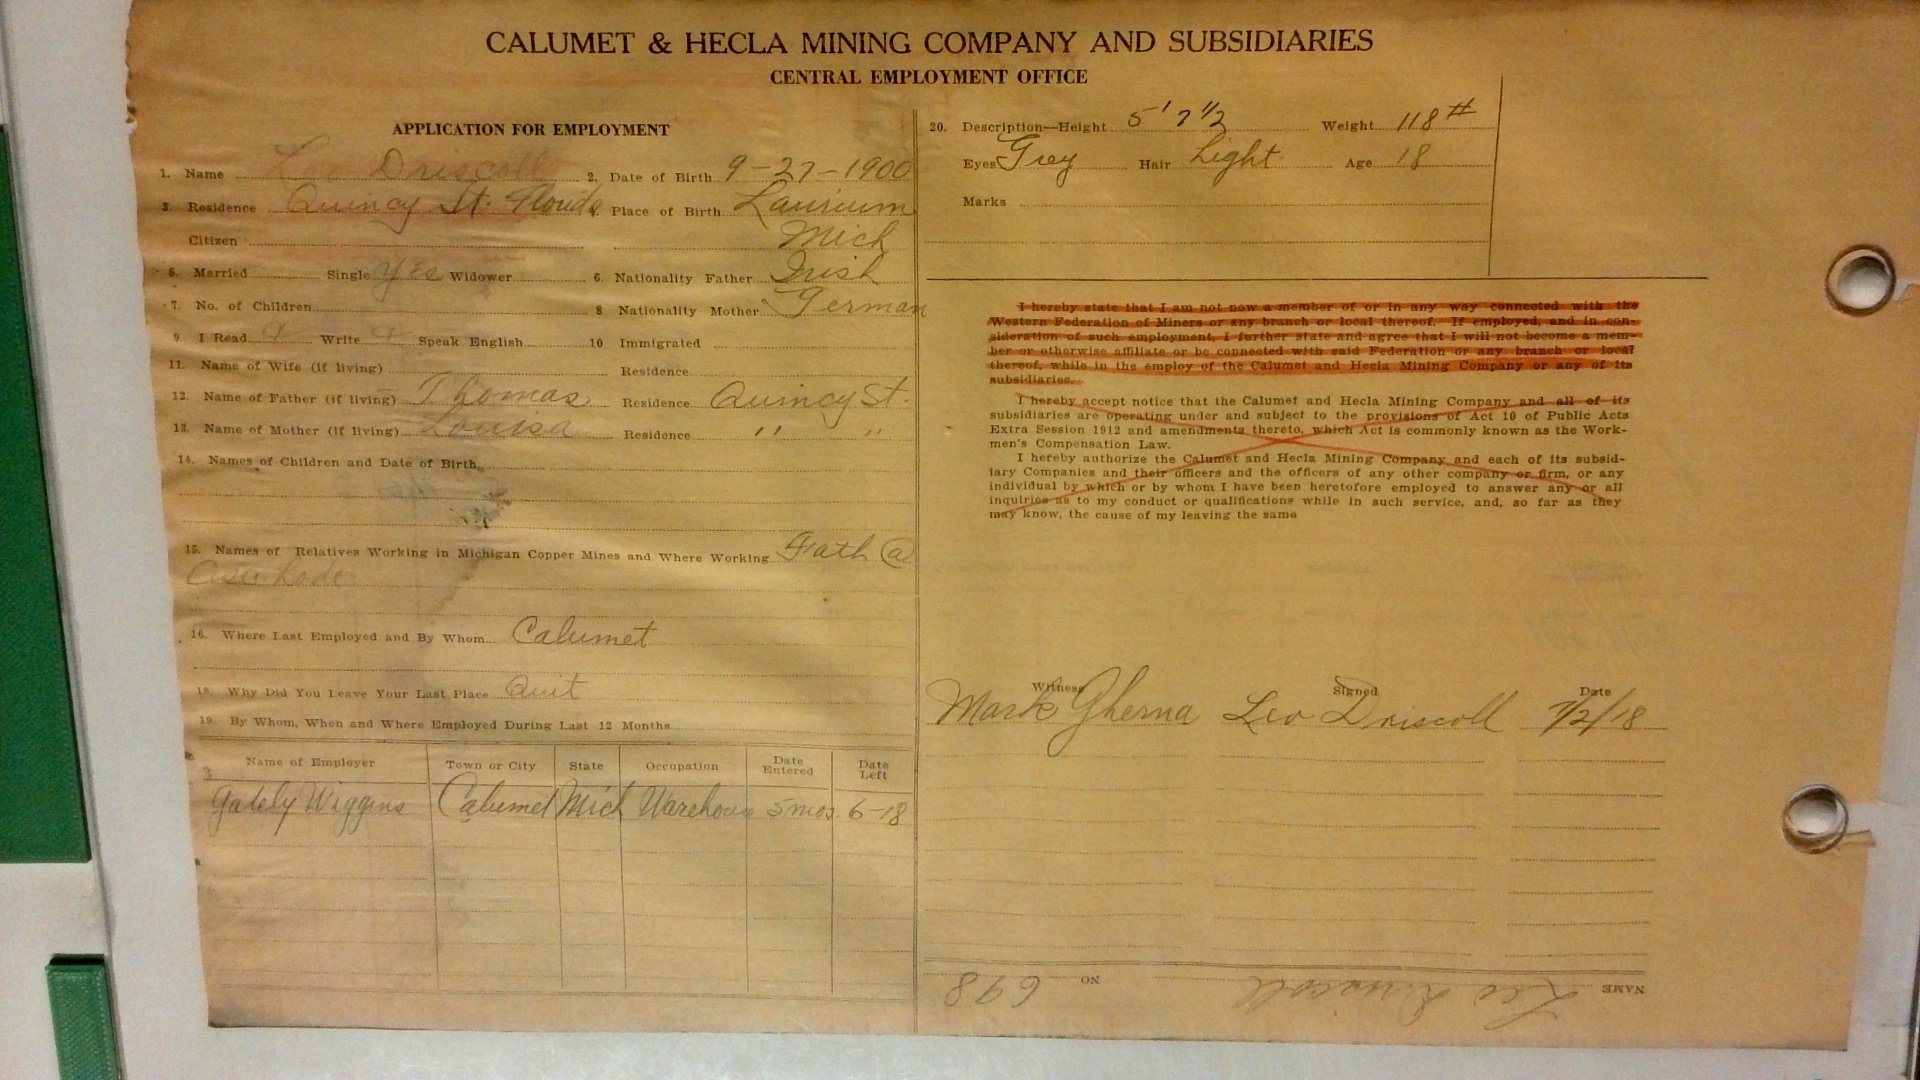 CALUMET & HECLA MINING COMPANY AND SUBSIDIARIES
CENTRAL EMPLOYMENT OFFICE
APPLICATION FOR EMPLOYMENT
1. Name Leo Driscoll 2. Date of Birth 9-27-1900
3. Residence Quincy St. 4. Place of Birth Laurium
Citizen Mich
5. Married Single Yes Widower 6. Nationality Father Irish
7. No. of Children 8 Nationality Mother German
9 I Read Write Speak English 10 Immigrated
11. Name of Wife (if living) Residence
12. Name of Father (if living) Thomas Residence Quincy St.
13. Name of Mother (if living) Louisa Residence " "
14. Names of Children and Date of Birth
15. Names of Relatives Working in Michigan Copper Mines and Where Working Fath @
16. Where Last Employed and By Whom Calumet
18. Why Did You Leave Your Last Place Quit
19. By Whom, When and Where Employed During Last 12 Months
Name of Employer Town or City State Occupation Date Entered Date Left
Gately Wiggins Calumet Mich Warehouse 5 mos. 6-18
20. Description—Height 5' 7 1/2 Weight 118#
Eyes Grey Hair Light Age 18
Marks
I hereby state that I am not now a member of or in any way connected with the
Western Federation of Miners or any branch or local thereof. If employed, and in con-
sideration of such employment, I further state and agree that I will not become a mem-
ber or otherwise affiliate or be connected with said Federation or any branch or local
thereof, while in the employ of the Calumet and Hecla Mining Company or any of its
subsidiaries.
I hereby accept notice that the Calumet and Hecla Mining Company and all of its
subsidiaries are operating under and subject to the provisions of Act 10 of Public Acts
Extra Session 1912 and amendments thereto, which Act is commonly known as the Work-
men's Compensation Law.
I hereby authorize the Calumet and Hecla Mining Company and each of its subsid-
iary Companies and their officers and the officers of any other company or firm, or any
individual by which or by whom I have been heretofore employed to answer any or all
inquiries as to my conduct or qualifications while in such service, and, so far as they
may know, the cause of my leaving the same
Witness Signed Date
Mark Gherna Leo Driscoll 7/2/18
NAME Leo Driscoll NO 698